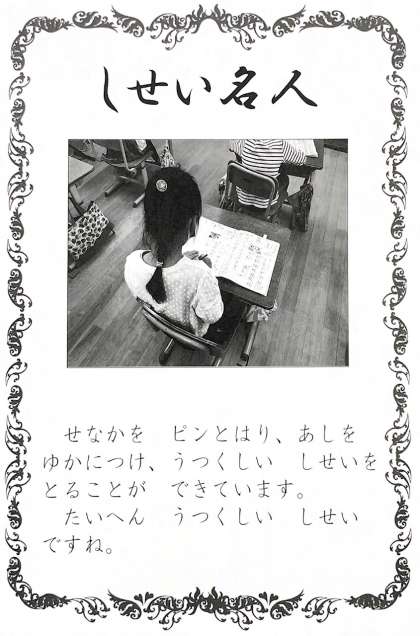 しせい名人
せなかを　ピンとはり、あしを
ゆかにつけ、うつくしい　しせいを
とることが　できています。
たいへん　うつくしい　しせい
ですね。